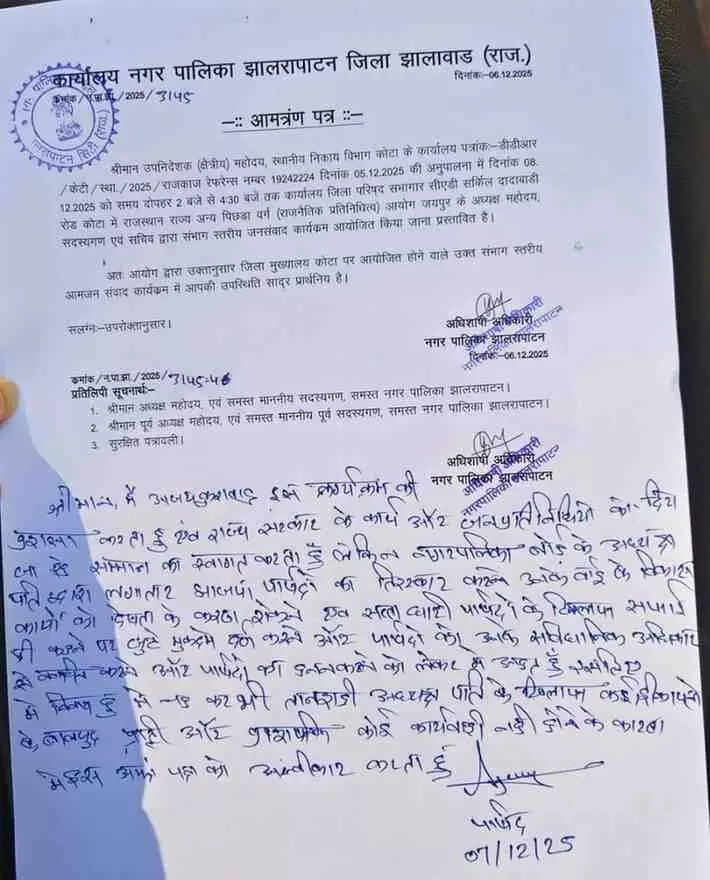 कार्यालय नगर पालिका झालरापाटन जिला झालावाड (राज.)
क्रमांक/न.पा.झा./2025/3145
दिनांक:-06.12.2025
-:: आमत्रंण पत्र ::-
श्रीमान उपनिदेशक (क्षेत्रीय) महोदय, स्थानीय निकाय विभाग कोटा के कार्यालय पत्रांक:-डीडीआर
/केटी/स्था./2025/राजकाज रेफरेन्स नम्बर 19242224 दिनांक 05.12.2025 की अनुपालना में दिनांक 08.
12.2025 को समय दोपहर 2 बजे से 4:30 बजें तक कार्यालय जिला परिषद सभागार सीएडी सर्किल दादाबाडी
रोड कोटा में राजस्थान राज्य अन्य पिछडा वर्ग (राजनैतिक प्रतिनिधित्व) आयोग जयपुर के अध्यक्ष महोदय,
सदस्यगण एवं सचिव द्वारा संभाग स्तरीय जनसंवाद कार्यकम आयोजित किया जाना प्रस्तावित है।
अतः आयोग द्वारा उक्तानुसार जिला मुख्यालय कोटा पर आयोजित होने वाले उक्त संभाग स्तरीय
आमजन संवाद कार्यकम में आपकी उपस्थिति सादर प्रार्थनिय है।
सलग्न:-उपरोक्तानुसार।
अधिशाषी अधिकारी
नगर पालिका झालरापाटन
दिनांक:-06.12.2025
क्रमांक/न.पा.झा/2025/3145-46
प्रतिलिपी सूचनार्थ:-
1. श्रीमान अध्यक्ष महोदय, एवं समस्त माननीय सदस्यगण, समस्त नगर पालिका झालरापाटन।
2. श्रीमान पूर्व अध्यक्ष महोदय, एवं समस्त माननीय पूर्व सदस्यगण, समस्त नगर पालिका झालरापाटन।
3. सुरक्षित पत्रावली।
अधिशाषी अधिकारी
नगर पालिका झालरापाटन
श्रीमान, मैं इस कार्यक्रम की
करता हुं एंव राज्य सरकार के कार्य और जनप्रतिनिधियो को दिया
सम्मान का स्वागत करता हुँ लेकिन नगरपालिका बोर्ड के अध्यक्ष
पति द्वारा लगातार भाजपा पार्षदो का तिरस्कार करने उनके वार्ड के विकास
कार्यो को के कारण रोकने एंव पार्षदो के खिलाफ
करने पर झुटे मुकदमे दर्ज करने और पार्षदो को उनके संविधानिक अधिकार
से वंचित करने और पार्षदो का करने को लेकर मे आहत हुँ
मे हुँ तानाशाही अध्यक्ष पति के खिलाफ कई शिकायतो
के बावजुद और कोई कार्यवाही नही होने के कारण
मे इस पत्र को अस्वीकार करता हुं
पार्षद
07/12/25